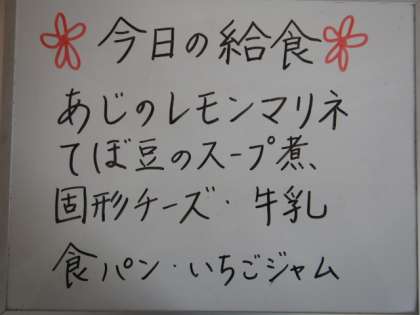 今日の給食
あじのレモンマリネ
てぼ豆のスープ煮、
固形チーズ・牛乳
食パン・いちごジャム